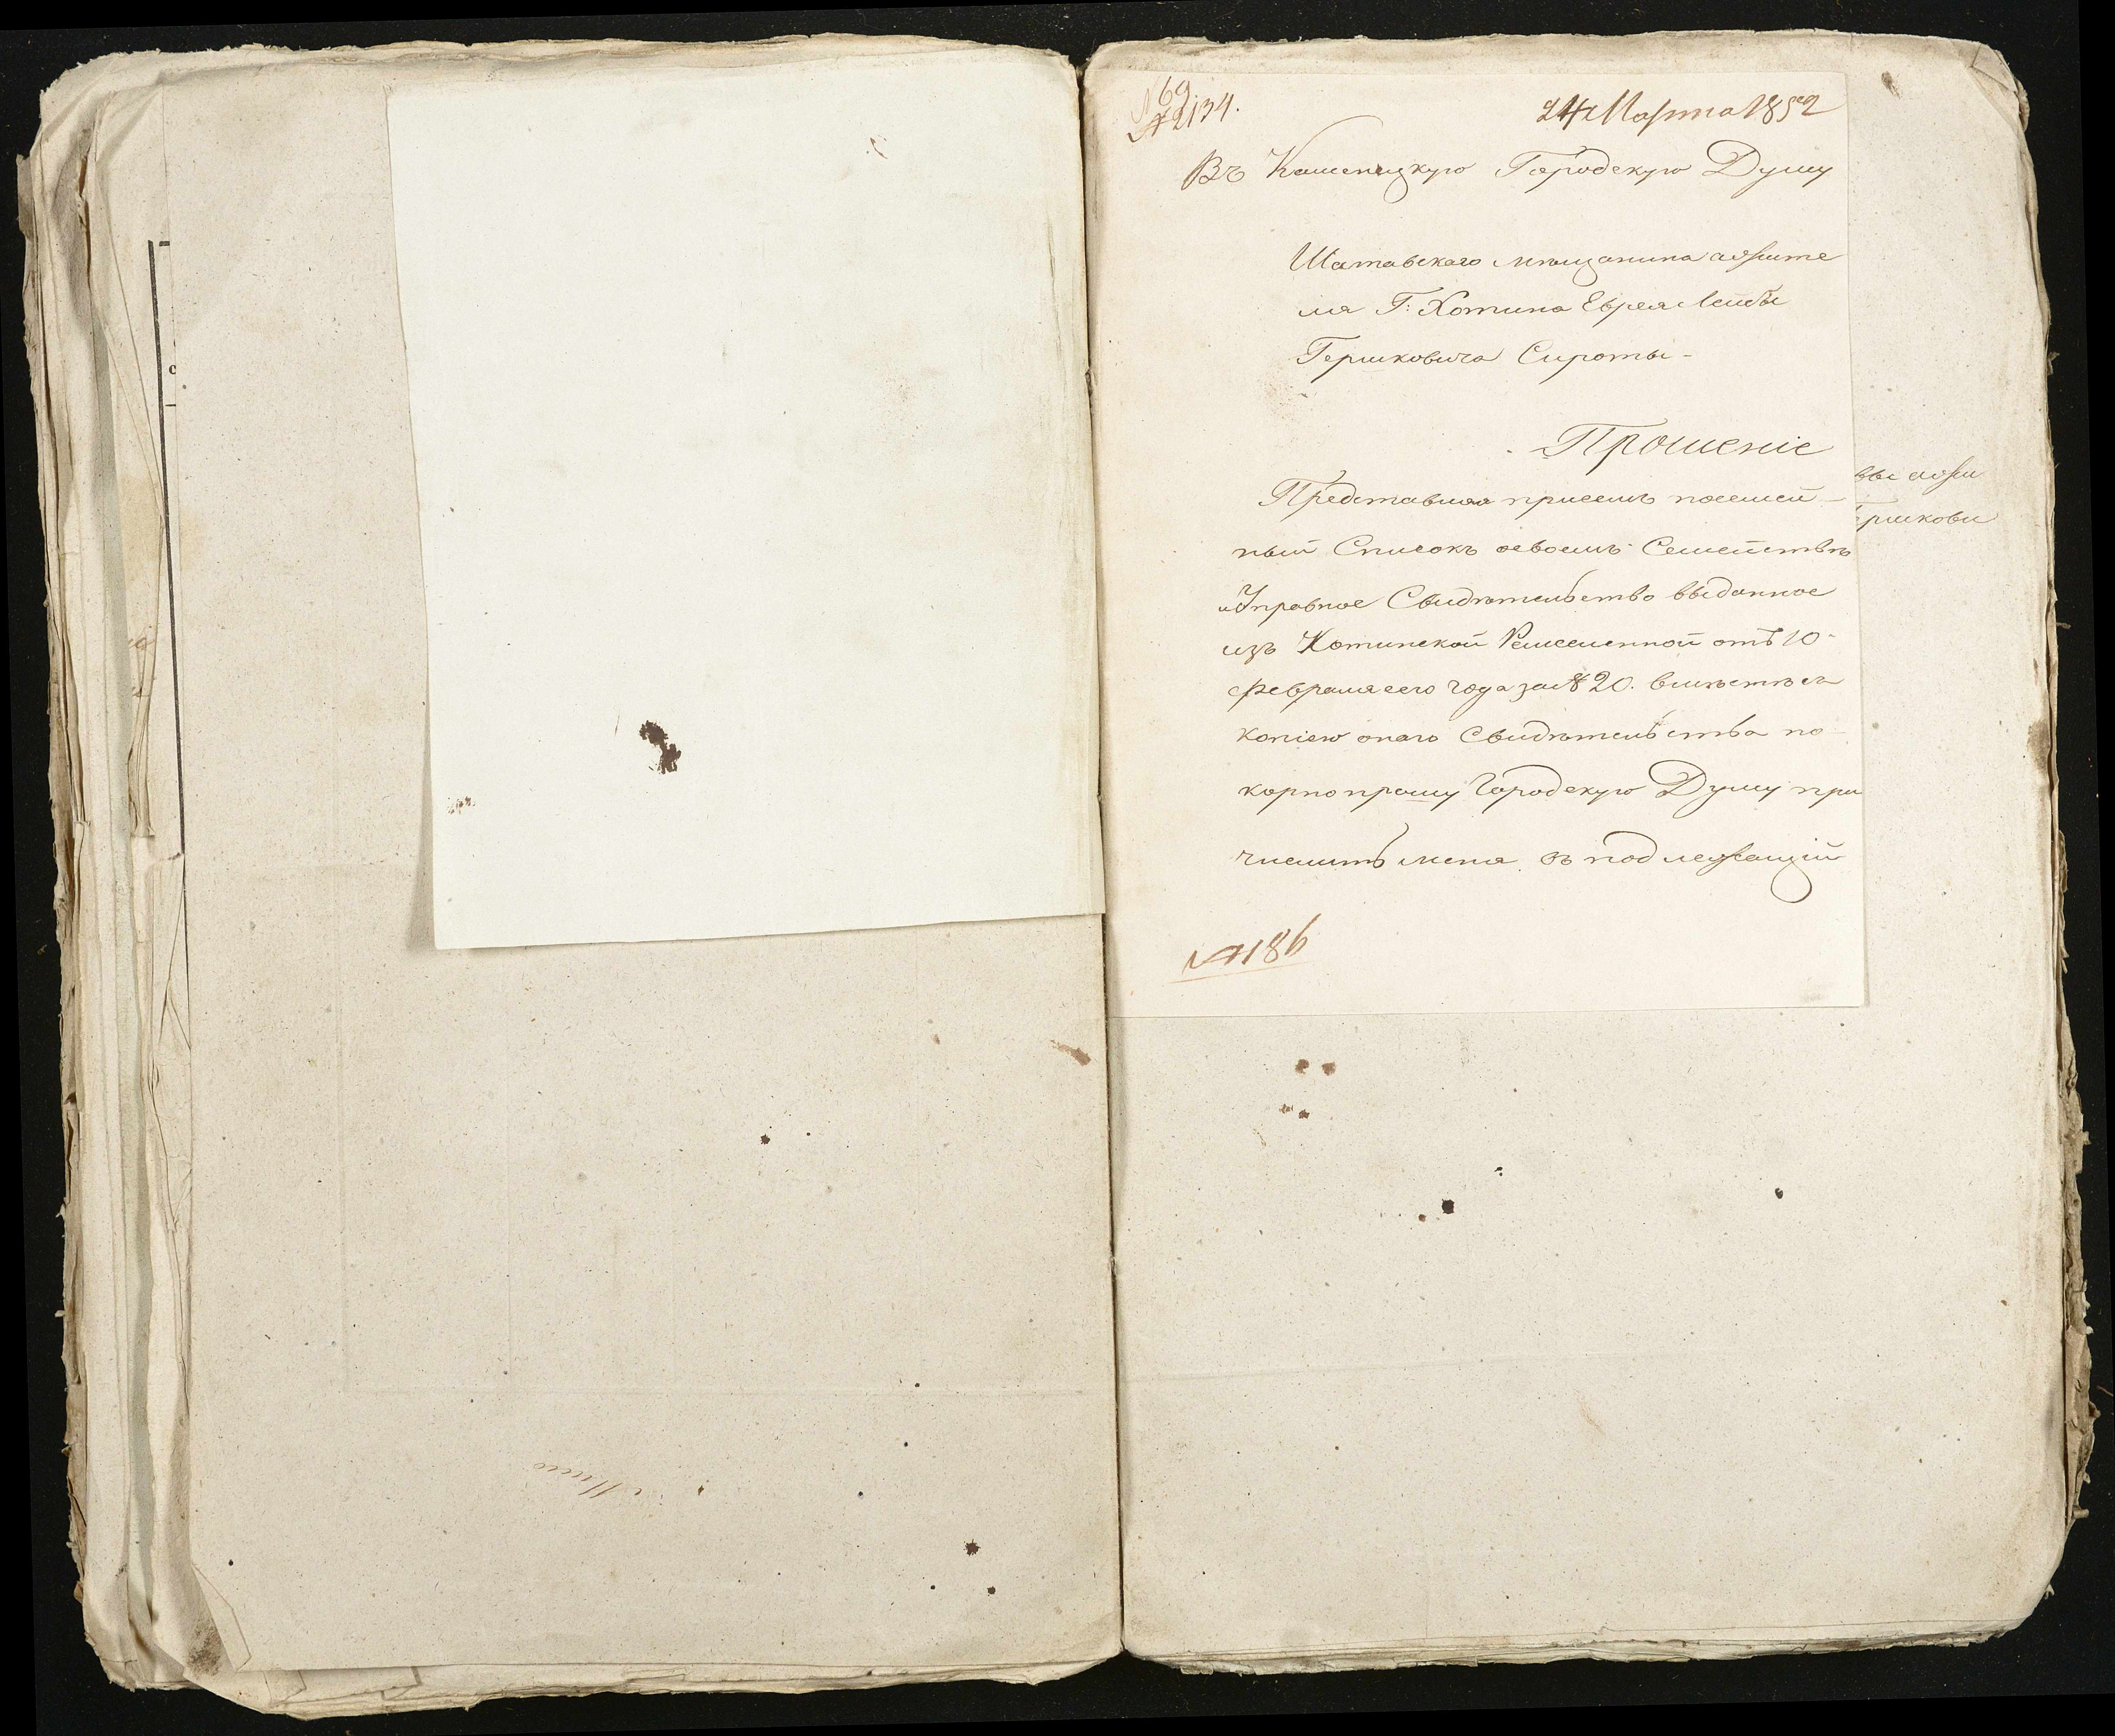 69
№ 2134.
24 Марта 1852
Въ Каменецкую Городскую Думу
Шатавскаго мѣщанина ажите
ля Г: Хотина Еврея Лейбы
Гершковича Сироты -
Прошеніе
Представляя присемъ посемей-
ный Списокъ освоемъ Семействѣ
и Управное Свидѣтельство выданное
изъ Хотинской Ремесленной отъ 10
февраля сего года за № 20. вмѣстѣ съ
копіею онаго Свидѣтельства по
корно прошу Городскую Думу при
числить меня въ подлежащій
№ 186
вы ажи
ершкови
с